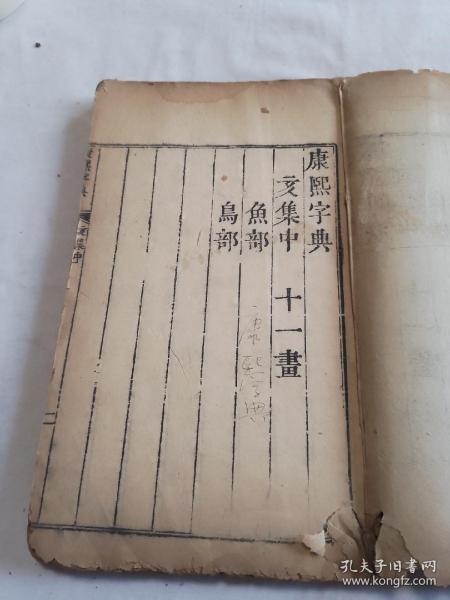 康熙字典
亥集中 十一畫
魚部
鳥部
康熙字典
熙字典
亥集中
二
孔夫子旧书网
www.kongfz.com